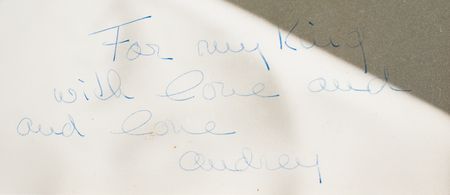 For my King
with love and
and love
audrey